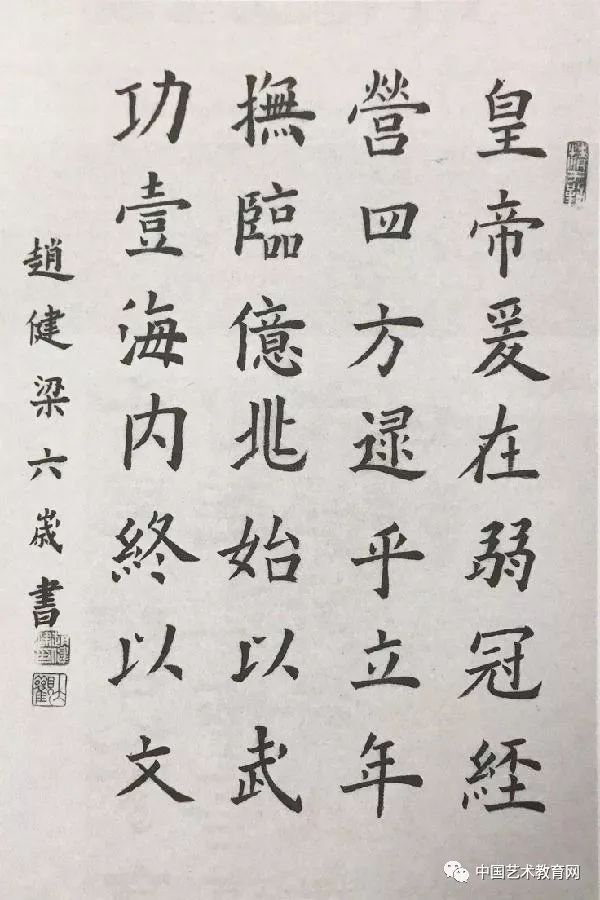 皇帝爰在弱冠經
營四方逯乎立年
撫臨億兆始以武
功壹海内終以文
趙健梁六歳書
中国艺术教育网